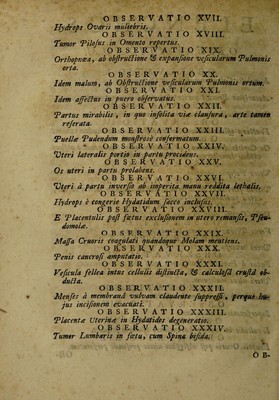 OBSERVATIO XVII.
Hydrops Ovarii muliebris.
OBSERVATIO XVIII.
Tumor Pilosus in Omento repertus.
OBSERVATIO XIX.
Orthopnœa, ab obstructione & expansione vesicularum Pulmonis
orta.
OBSERVATIO XX.
Idem malum, ab Obstructione vesicularum Pulmonis ortum.
OBSERVATIO XXI.
Idem affectus in puero observatus.
OBSERVATIO XXII.
Partus mirabilis, in quo insolita viæ clausura, arte tamen
reserata.
OBSERVATIO XXIII.
Puellæ Pudendum monstrosè conformatum.
OBSERVATIO XXIV.
Uteri lateralis portio in partu procidens.
OBSERVATIO XXV.
Os uteri in partu prolabens.
OBSERVATIO XXVI.
Uteri à partu inversio ab imperita manu reddita lethalis.
OBSERVATIO XXVII.
Hydrops è congerie Hydatidum sacco inclusis.
OBSERVATIO XXVIII.
E Placentulis post fœtus exclusionem in utero remansis, Pseu-
domolæ.
OBSERVATIO XXIX.
Massa Cruoris coagulati quandoque Molam mentiens.
OBSERVATIO XXX.
Penis cancrosi amputatio.
OBSERVATIO XXXI.
Vesicula fellea intus cellulis distincta, & calculosâ crustâ ob-
ducta.
OBSERVATIO XXXII.
Menses à membranâ vulvam claudente suppressi, perque hu-
jus incisionem evacuati.
OBSERVATIO XXXIII.
Placentæ Uterinæ in Hydatides degeneratio.
OBSERVATIO XXXIV.
Tumor Lumbaris in fœtu, cum Spina bifida.
OB-